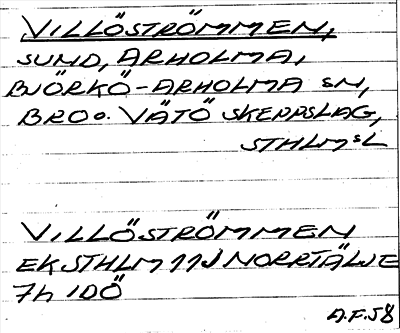 VILLÖSTRÖMMEN,
SUND, ARHOLMA,
BJÖRKÖ-ARHOLMA SN,
BRO O. VÄTÖ SKEPPSLAG,
STHLMSL
VILLÖSTRÖMMEN
EK STHLM 11J NORRTÄLJE
7h IDÖ
A.F. 58